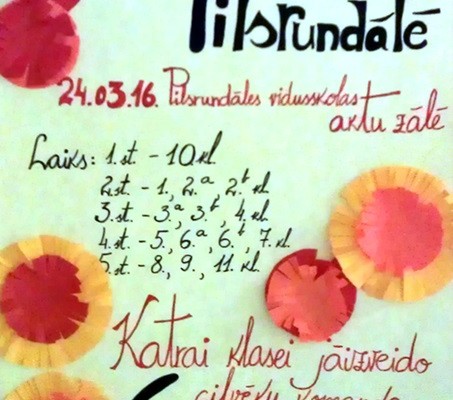 Pilsrundālē
24.03.16. Pilsrundāles vidusskolas
aktu zālē
Laiks: 1.st. - 10.kl.
2.st. - 1., 2.a, 2.b kl.
3.st. - 3.a, 3.b, 4.kl.
4.st. - 5., 6.a, 6.b, 7.kl.
5.st. - 8., 9., 11.kl.
Katrai klasei jāizveido
cilvēku komanda